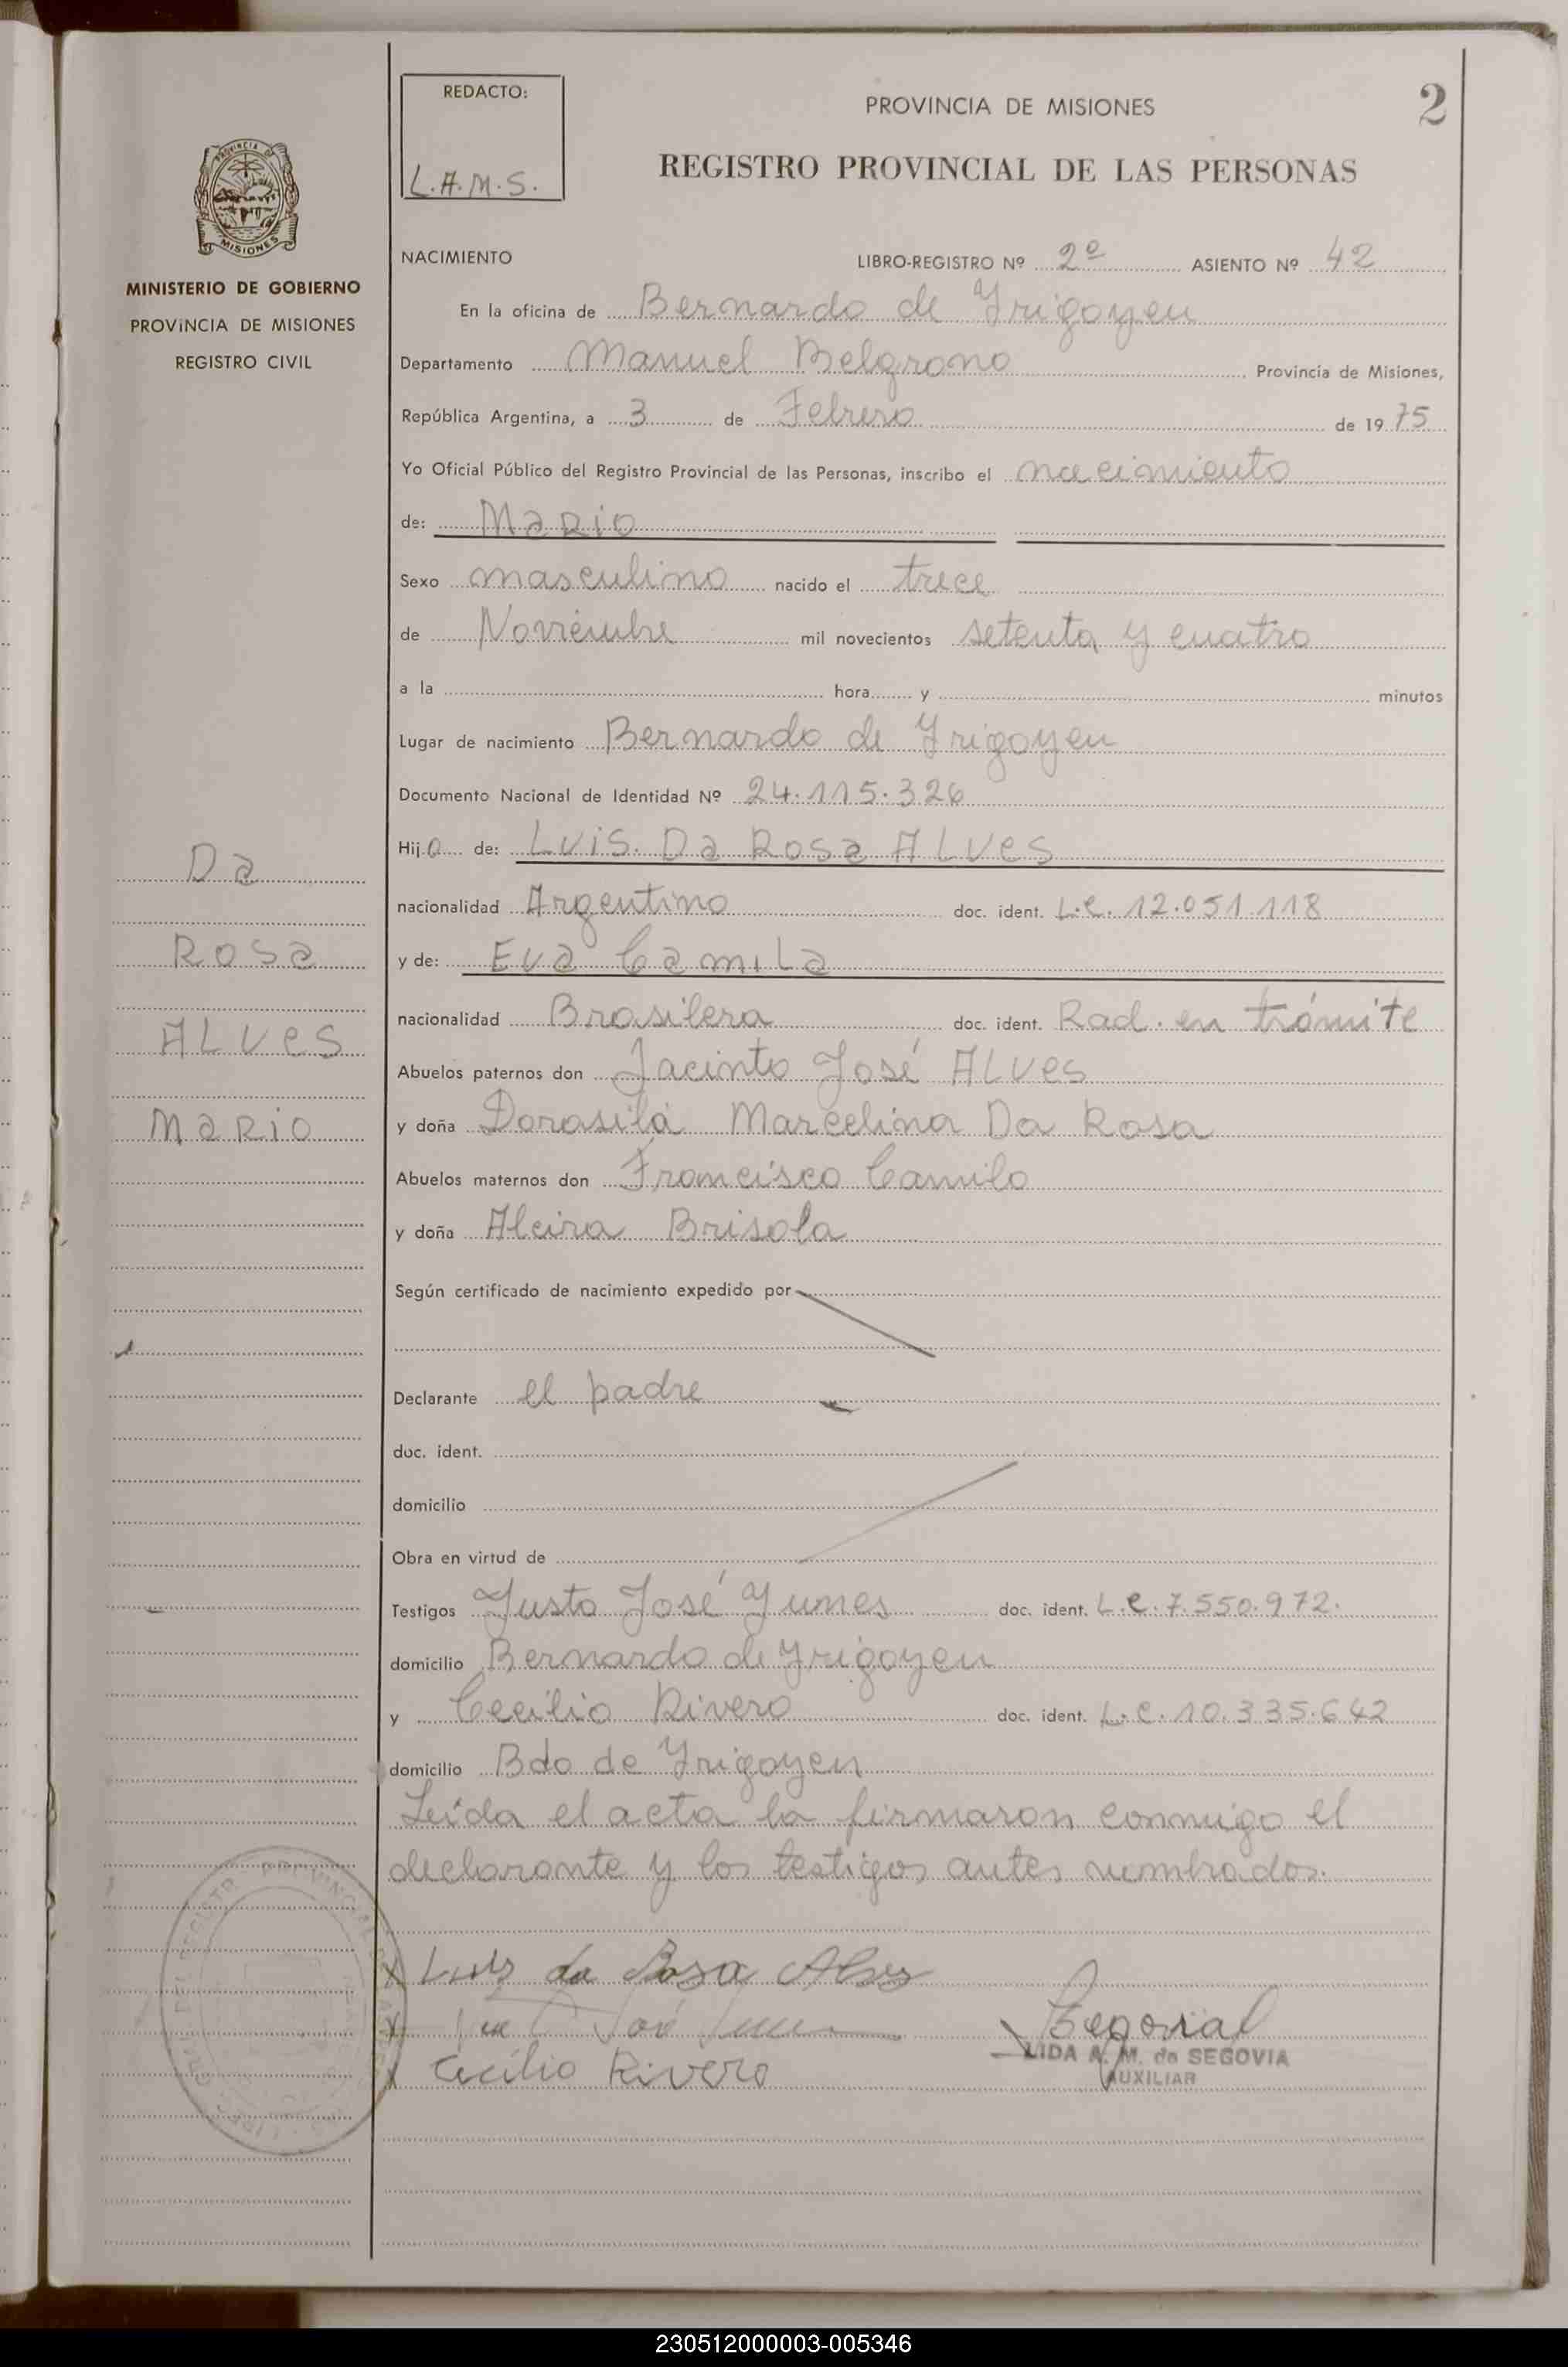 REDACTO:
L.A.M.S.
PROVINCIA DE MISIONES
2
REGISTRO PROVINCIAL DE LAS PERSONAS
PROVINCIA DE
MISIONES
MINISTERIO DE GOBIERNO
PROVINCIA DE MISIONES
REGISTRO CIVIL
NACIMIENTO LIBRO-REGISTRO Nº 2º ASIENTO Nº 42
En la oficina de Bernardo de Yrigoyen
Departamento Manuel Belgrano Provincia de Misiones,
República Argentina, a 3 de Febrero de 1975
Yo Oficial Público del Registro Provincial de las Personas, inscribo el nacimiento
de: Mario
Sexo masculino nacido el trece
de Noviembre mil novecientos setenta y cuatro
a la hora y minutos
Lugar de nacimiento Bernardo de Yrigoyen
Documento Nacional de Identidad Nº 24.115.326
Hijo de: Luis Da Rosa Alves
nacionalidad Argentino doc. ident. L.E. 12.051.118
y de: Eva Camila
nacionalidad Brasilera doc. ident. Rad. en trámite
Abuelos paternos don Jacinto José Alves
y doña Dorasila Marcelina Da Rosa
Abuelos maternos don Francisco Camilo
y doña Alcira Brisola
Da
Rosa
Alves
Mario
Según certificado de nacimiento expedido por
Declarante el padre
doc. ident.
domicilio
Obra en virtud de
Testigos Justo José Yunes doc. ident. L.E. 7.550.972.
domicilio Bernardo de Yrigoyen
y Cecilio Rivero doc. ident. L.E. 10.335.642
domicilio Bdo de Yrigoyen
Leída el acta la firmaron conmigo el
declarante y los testigos antes nombrados.
X Luis da Rosa Alves
X José
X Cecilio Rivero
Segovia
LIDA A. M. de SEGOVIA
AUXILIAR
230512000003-005346